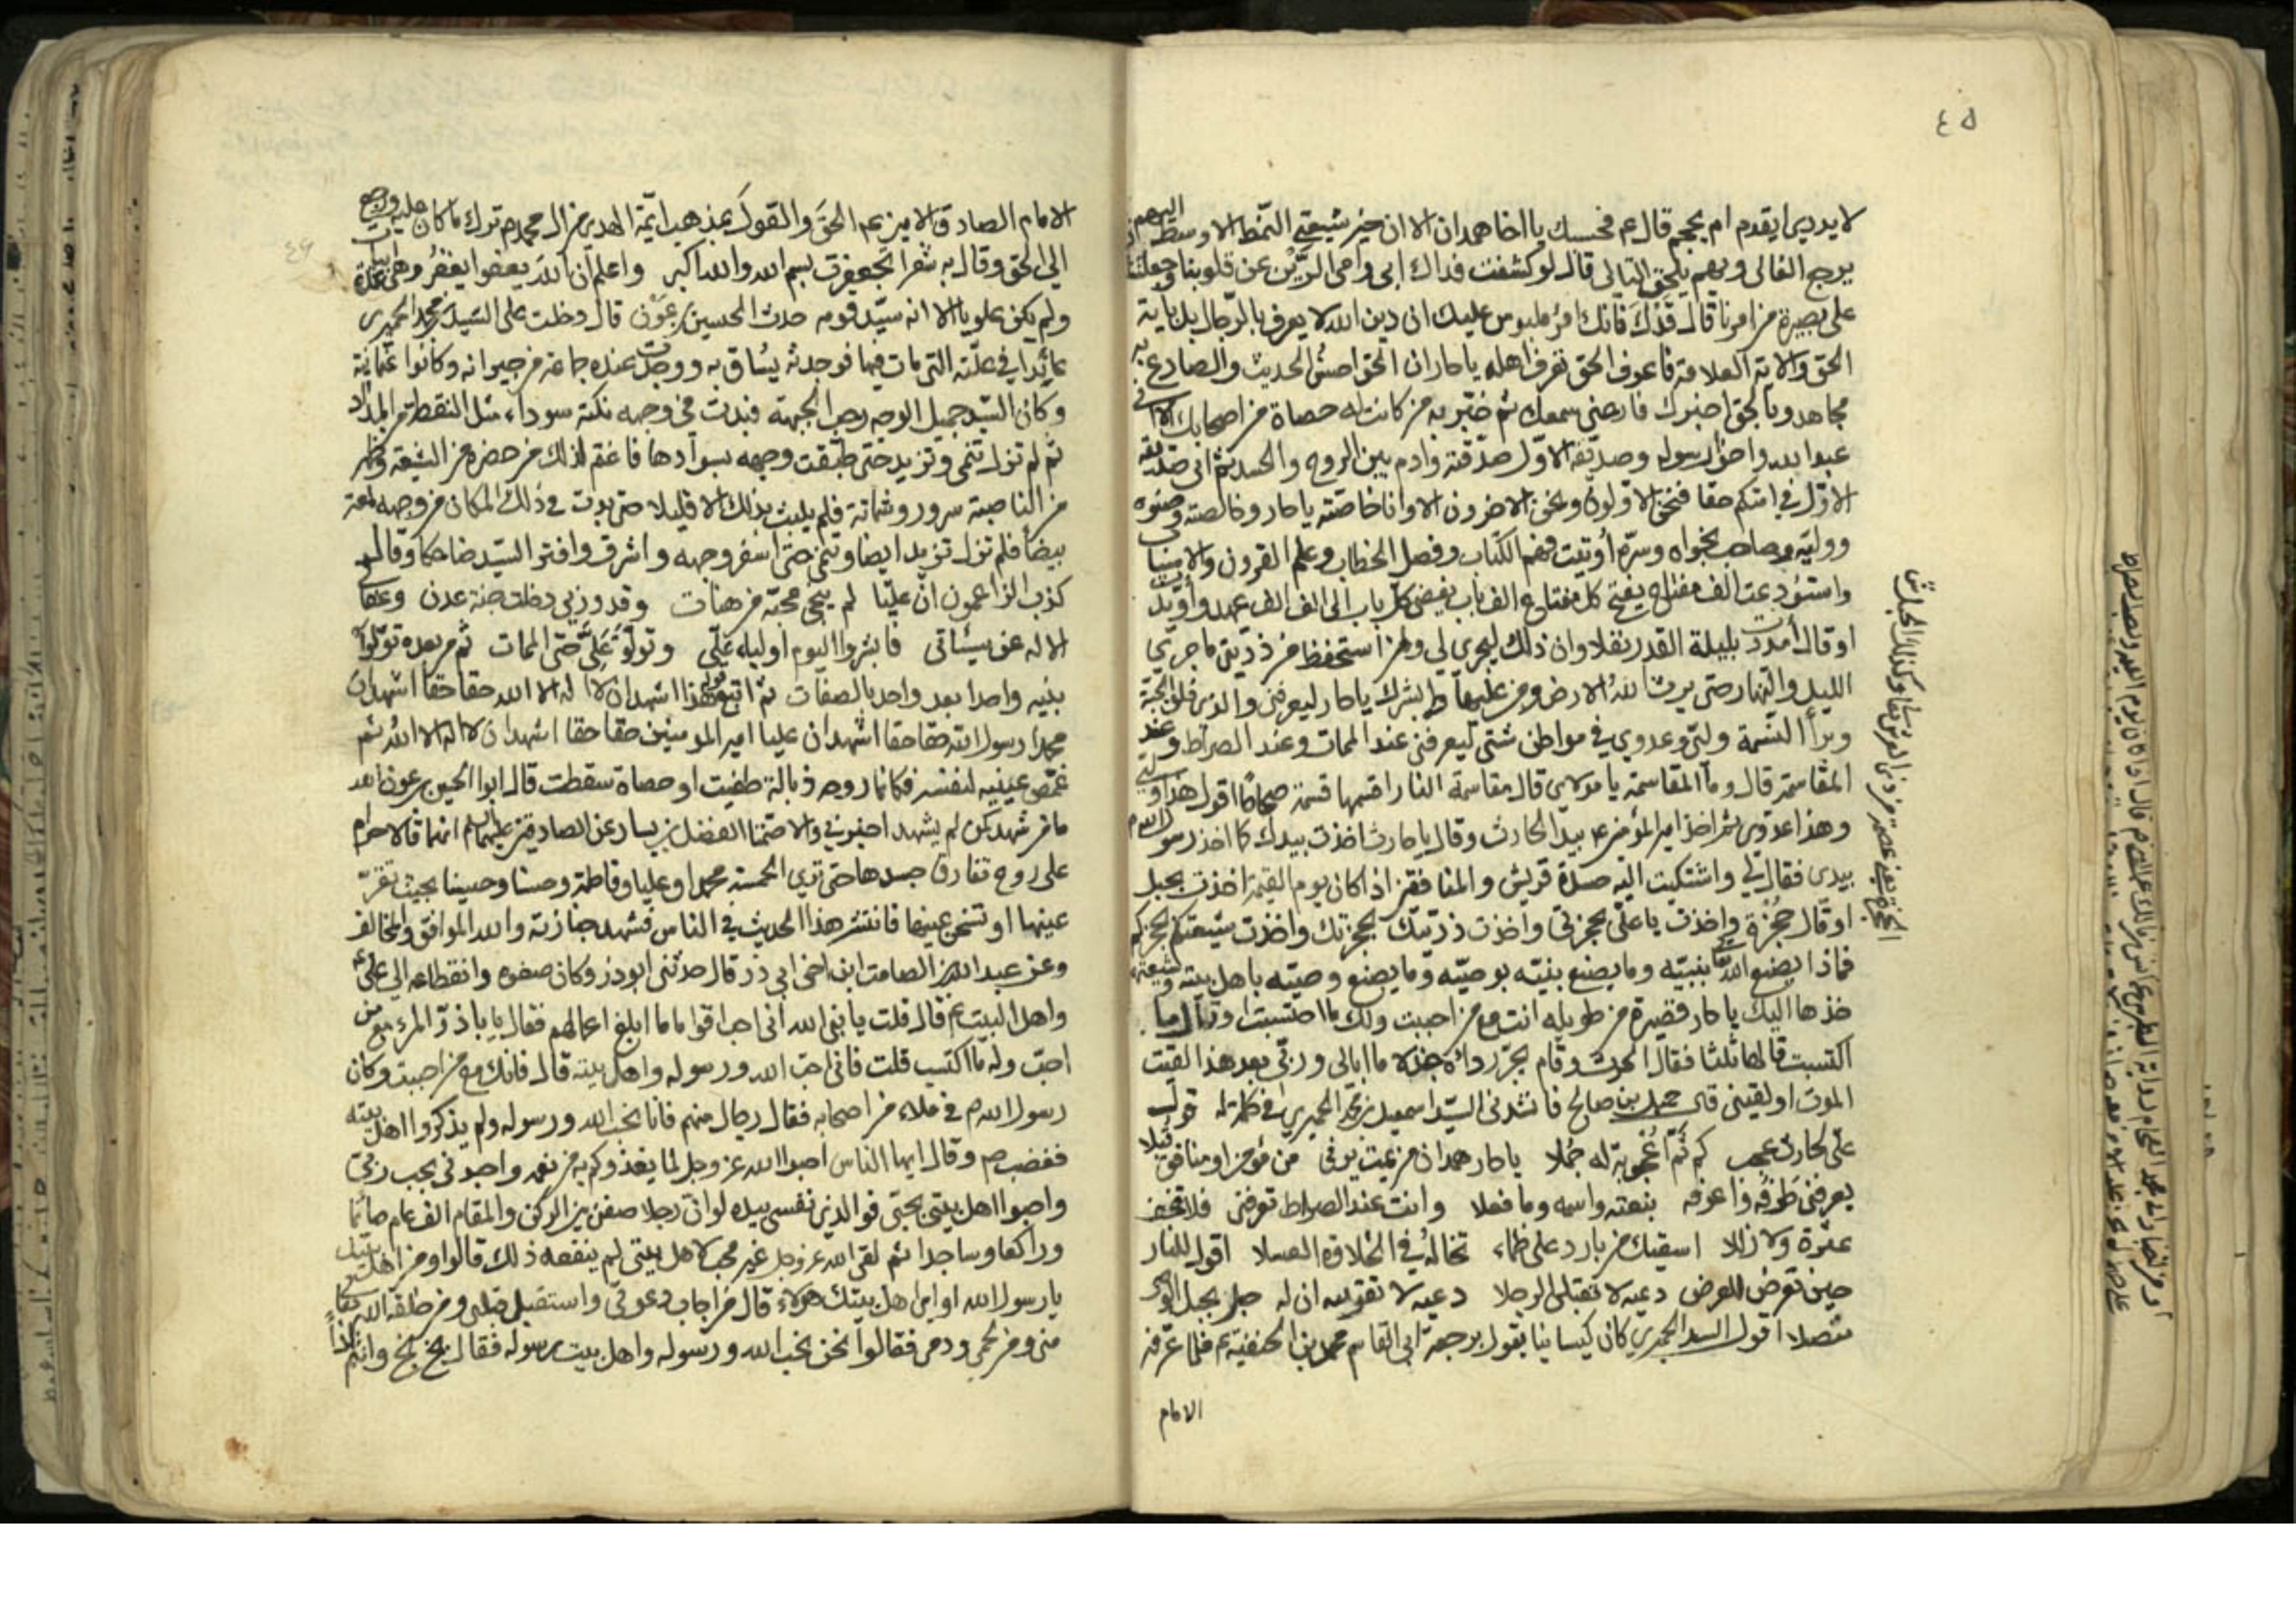 ٤٥
لا يدري ايقدم ام يحجم قال ع م فحسبك يا اخا همدان الا ان خير شيعتي النمط الاوسط اليهم
يرجع الغالى وبهم يلحق التالى قال لو كشفت فداك ابى وامى الرين عن قلوبنا وجعلتنا
على بصيرة من امرنا قال قدك فانك امرؤ ملبوس عليك ان دين الله لا يعرف بالرجال بل بآية
الحق والاية العلامة فاعرف الحق تعرف اهله يا حار ان الحق احسن الحديث والصادع به
مجاهد وبالحق اخبرك فارعنى سمعك ثم خبر به من كانت له حصاة من اصحابك الا انى
عبد الله واخو رسوله وصديقه الاول صدقته وادم بين الروح والجسد ثم انى صديقه
الاول في امتكم حقا فنحن الاولون ونحن الاخرون الا وانا خاصته يا حار وخالصته وصنوه
ووليه وصاحب نجواه وسره أوتيت فهم الكتاب وفصل الخطاب وعلم القرون والاسباب
واستودعت الف مفتاح يفتح كل مفتاح الف باب يفضى كل باب الى الف الف عهد وأويدت
او قال امددت بليلة القدر نفلا وان ذلك ليجرى لى ولمن استحفظ من ذريتى ما جرى
الليل والنهار حتى يرث الله الارض ومن عليها وابشرك يا حار ليعرفنى والذى فلق الحبة
وبرأ النسمة وليى وعدوي في مواطن شتى ليعرفنى عند الممات وعند الصراط وعند
المقاسمة قال وما المقاسمة يا مولاى قال مقاسمة النار اقسمها قسمة صحاحا اقول هذا وليى
وهذا عدوى ثم اخذ امير المؤمنين ع بيد الحارث وقال يا حارث اخذت بيدك كما اخذ رسول الله ص
بيدى فقال لي واشتكيت اليه حسدة قريش والمنافقين اذا كان يوم القيمة اخذت بحبل
او قال حجزة واخذت يا على بحجزتى واخذت ذريتك بحجزتك واخذت شيعتكم بحجزكم
فماذا يصنع الله بنبيه وما يصنع نبيه بوصيه وما يصنع وصيه باهل بيته وشيعته
خذها اليك يا حار قصيرة من طويلة انت مع من احببت ولك ما احتسبت او قال ما
اكتسبت قالها ثلثا فقال الحرث وقام يجر رداءه جذلا ما ابالى وربى بعد هذا القيت
الموت او لقينى قال جميل بن صالح فانشدنى السيد اسمعيل بن محمد الحميري في كلمة له قول
على لحارث عجب كم ثم اعجوبة له جملا يا حار همدان من يمت يرنى من مؤمن او منافق قبلا
يعرفنى طرفه واعرفه بنعته واسمه وما فعلا وانت عند الصراط تعرفنى فلا تخف
عثرة ولا زللا اسقيك من بارد على ظماء تخاله في الحلاوة العسلا اقول للنار
حين تعرض للعرض دعيه لا تقبلى الرجلا دعيه لا تقربيه ان له حبلا بحبل الوصى
متصلا اقول السيد الحميري كان كيسانيا يقول برجعة ابى القاسم محمد بن الحنفية ع فلما عرفه
الامام
الامام الصادق الامين ع م الحق والقول بمذهب ائمة الهدى من ال محمد ص ترك ما كان عليه ورجع
الى الحق وقال به شعرا تجعفرت بسم الله والله اكبر واعلم ان الله يعفو ويغفر وهى ابيات عدة
ولم يكن علويا الا انه سيد قومه حدث الحسين بن عون قال دخلت على السيد بن محمد الحميري
عائدا في علته التى مات فيها فوجدته يساق به ووجدت عنده جماعة من جيرانه وكانوا عثمانية
وكان السيد جميل الوجه رحب الجبهة فبدت في وجهه نكتة سوداء مثل النقطة من المداد
ثم لم تزل تنمى وتزيد حتى طبقت وجهه بسوادها فاغتم لذلك من حضره من الشيعة وظهر
من الناصبة سرور وشماتة فلم يلبث بذلك الا قليلا حتى بدت في ذلك المكان من وجهه لمعة
بيضاء فلم تزل تزيد ايضا وتنمى حتى اسفر وجهه واشرق وافتر السيد ضاحكا وقال
كذب الزاعمون ان عليا لم ينجى محبه من هنات قد وربى دخلت جنة عدن وعفا لى
الاله عن سيئاتى فابشروا اليوم اولياء على وتولوا على حتى الممات ثم من بعده تولوا
بنيه واحدا بعد واحد بالصفات ثم اتبع قوله هذا اشهد ان لا اله الا الله حقا حقا اشهد ان
محمدا رسول الله حقا حقا اشهد ان عليا امير المومنين حقا حقا اشهد ان لا اله الا الله ثم
غمض عينيه لنفسه فكانما روحه ذبالة طفيت او حصاة سقطت قال ابو الحسين بن عون الله
ما من شهد كمن لم يشهد اخبرونى والا صمتا الفضل بن يسار عن الصادقين عليهما السلام انهما قالا حرام
على روح تفارق جسدها حتى ترى الخمسة محمدا وعليا وفاطمة وحسنا وحسينا بحيث تقر
عينها او تسخن عينها فانتشر هذا الحديث في الناس فشهد جنازته والله الموافق والمخالف
وعن عبد الله بن الصامت ابن اخى ابى ذر قال حدثنى ابو ذر وكان صغوه وانقطاعه الى على ع
واهل البيت ع م قال قلت يا نبى الله انى احب اقواما ما ابلغ اعمالهم فقال يا باذر المرء مع من
احب وله ما اكتسب قلت فانى احب الله ورسوله واهل بيته قال فانك مع من احببت وكان
رسول الله ص في ملاء من اصحابه فقال رجال منهم فانا نحب الله ورسوله ولم يذكروا اهل بيته
فغضب ص وقال ايها الناس احبوا الله عز وجل لما يغذوكم به من نعمه واحبونى بحب ربى
واحبوا اهل بيتى بحبى فوالذى نفسى بيده لو ان رجلا صفن بين الركن والمقام الف عام صائما
وراكعا وساجدا ثم لقى الله عز وجل غير محب لاهل بيتى لم ينفعه ذلك قالوا ومن اهل بيتك
يا رسول الله او اى اهل بيتك هولاء قال من اجاب دعوتى واستقبل قبلتى ومن خلقه الله
منى ومن لحمى ودمى فقالوا نحن نحب الله ورسوله واهل بيت رسوله فقال بخ بخ وانتم اذا